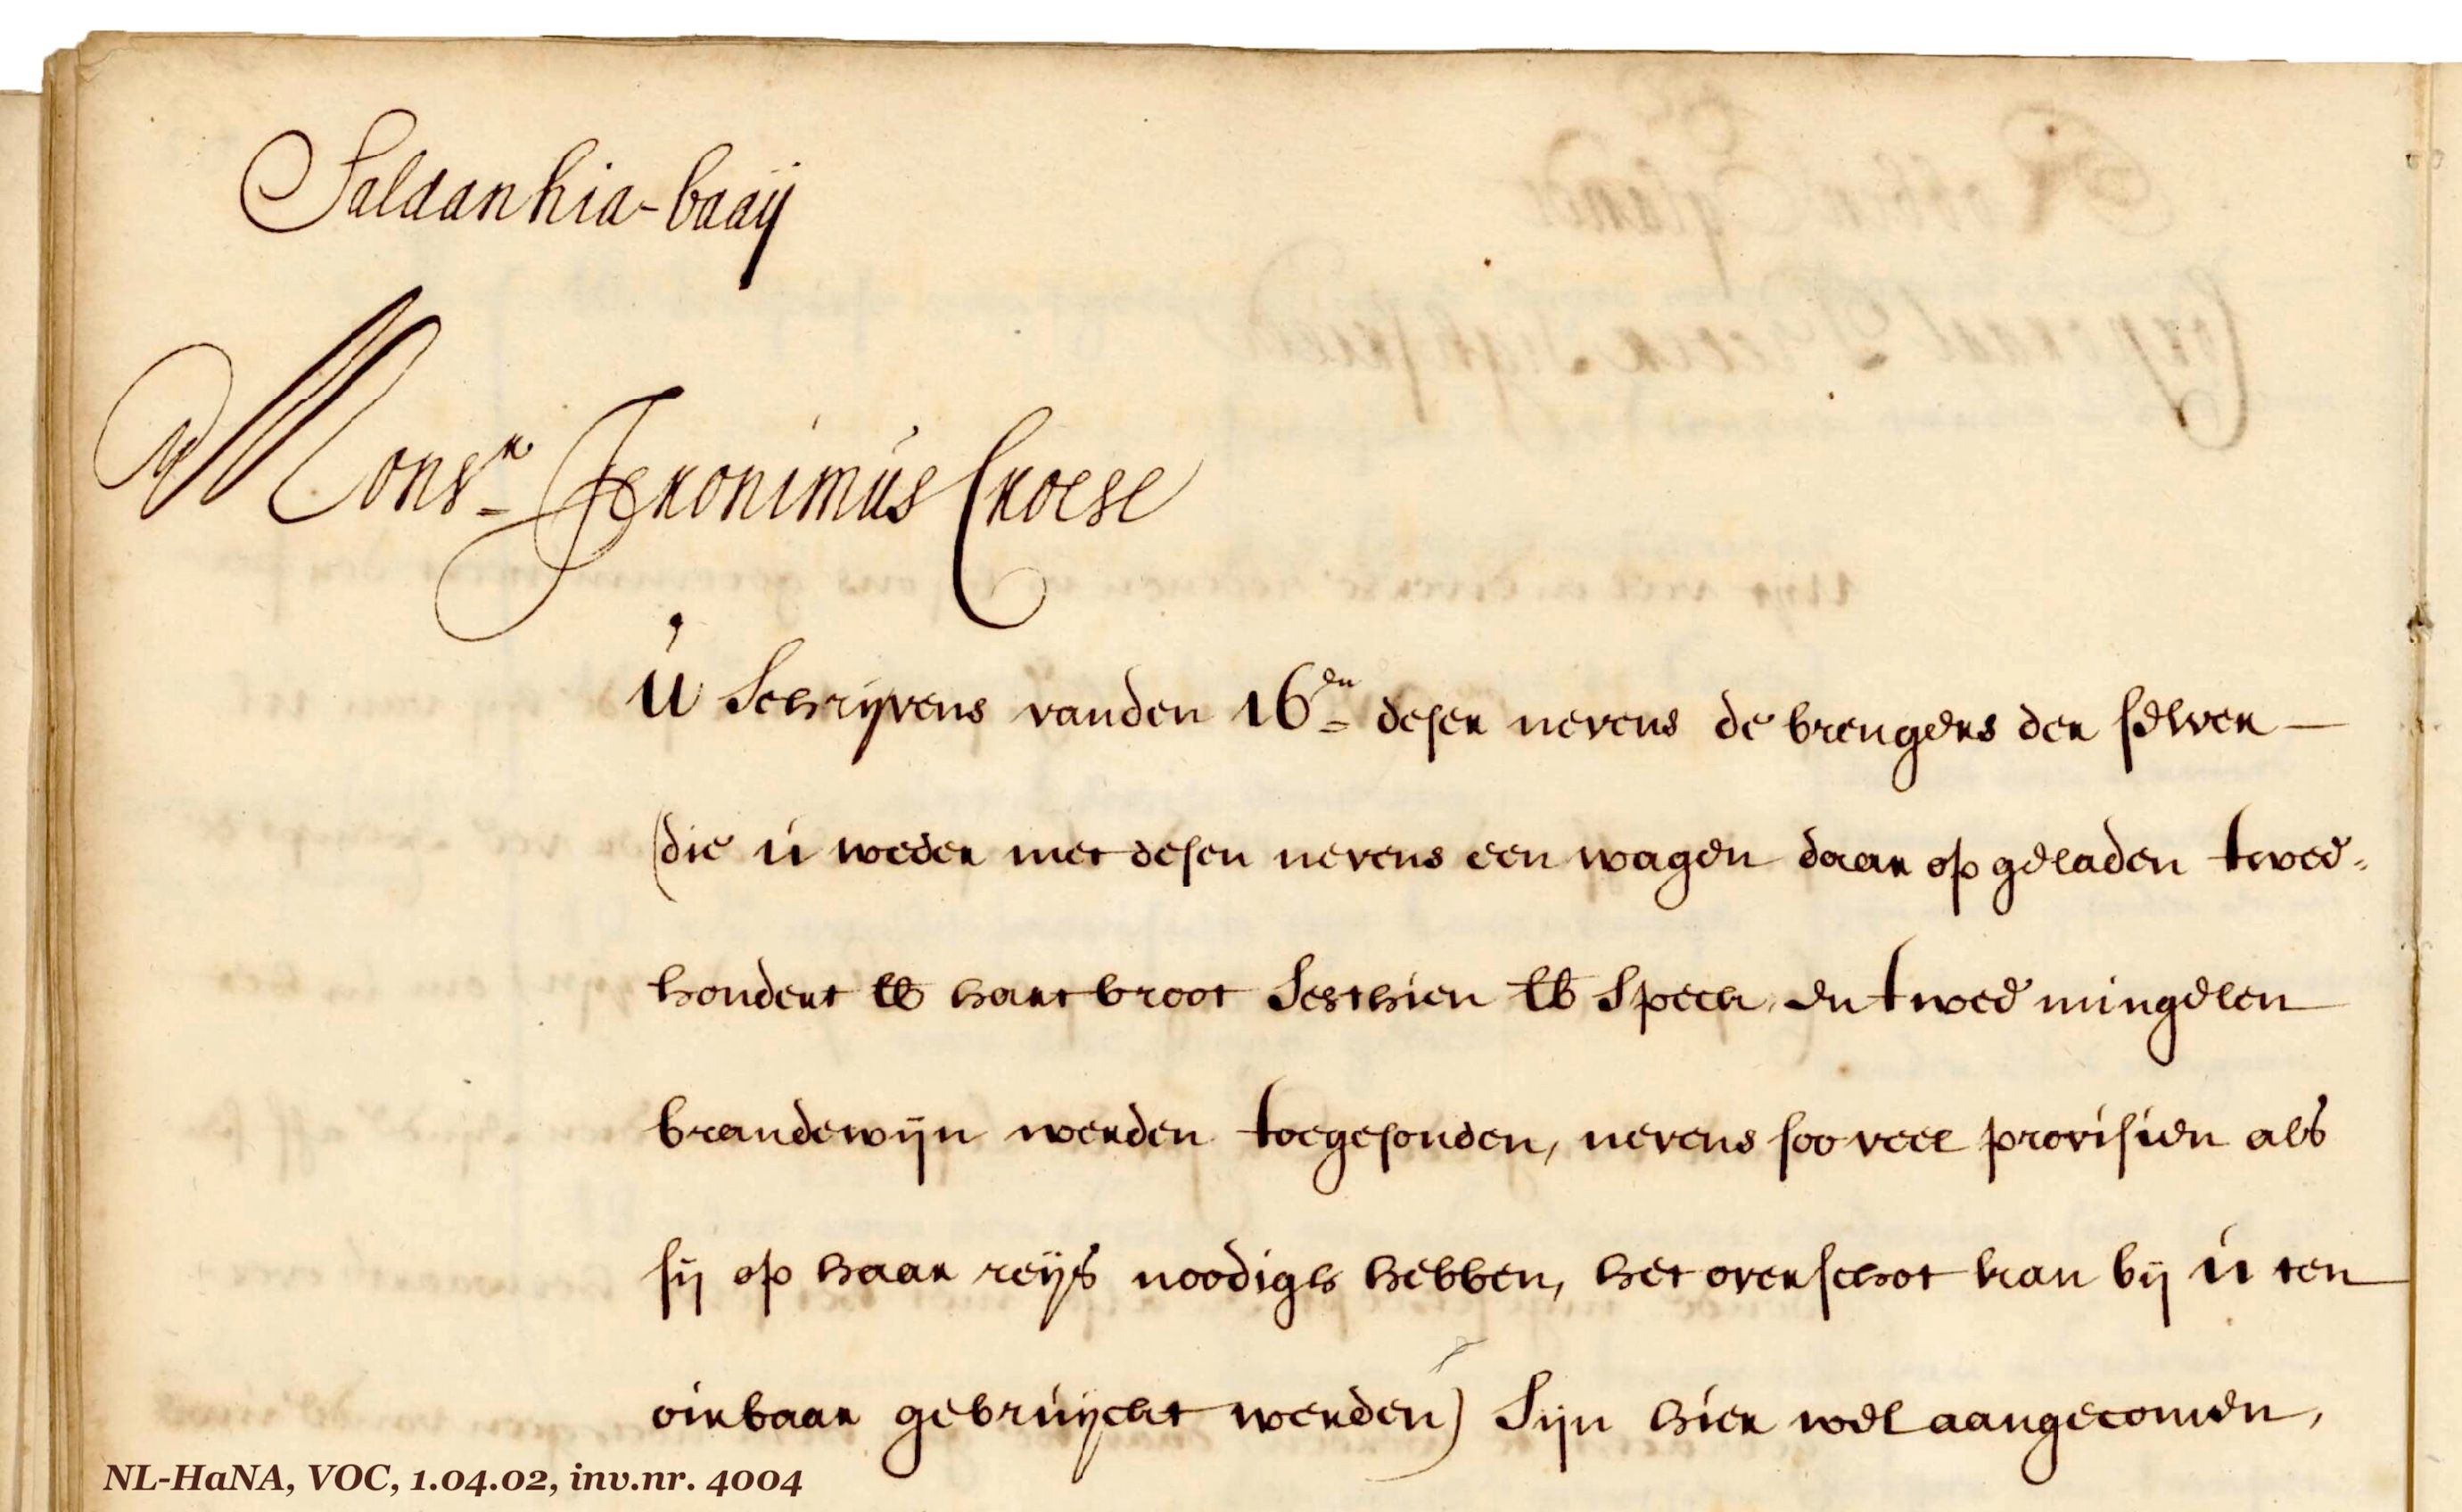 Saldanhia-baaij
Monsr. Jeronimus Croese
U Schrijvens vanden 16en deser nevens de brengers der selver
(die u weder met desen nevens een wagen daar op geladen twee
hondert lb hart broot Sesthien lb Speck, en twee mingelen
brandewijn werden toegesonden, nevens soo veel provisien als
sij op haar reijs noodigh hebben, het overschot kan bij u ten
oirbaar gebruijckt werden) Sijn hier wel aangecomen,
NL-HaNA, VOC, 1.04.02, inv.nr. 4004